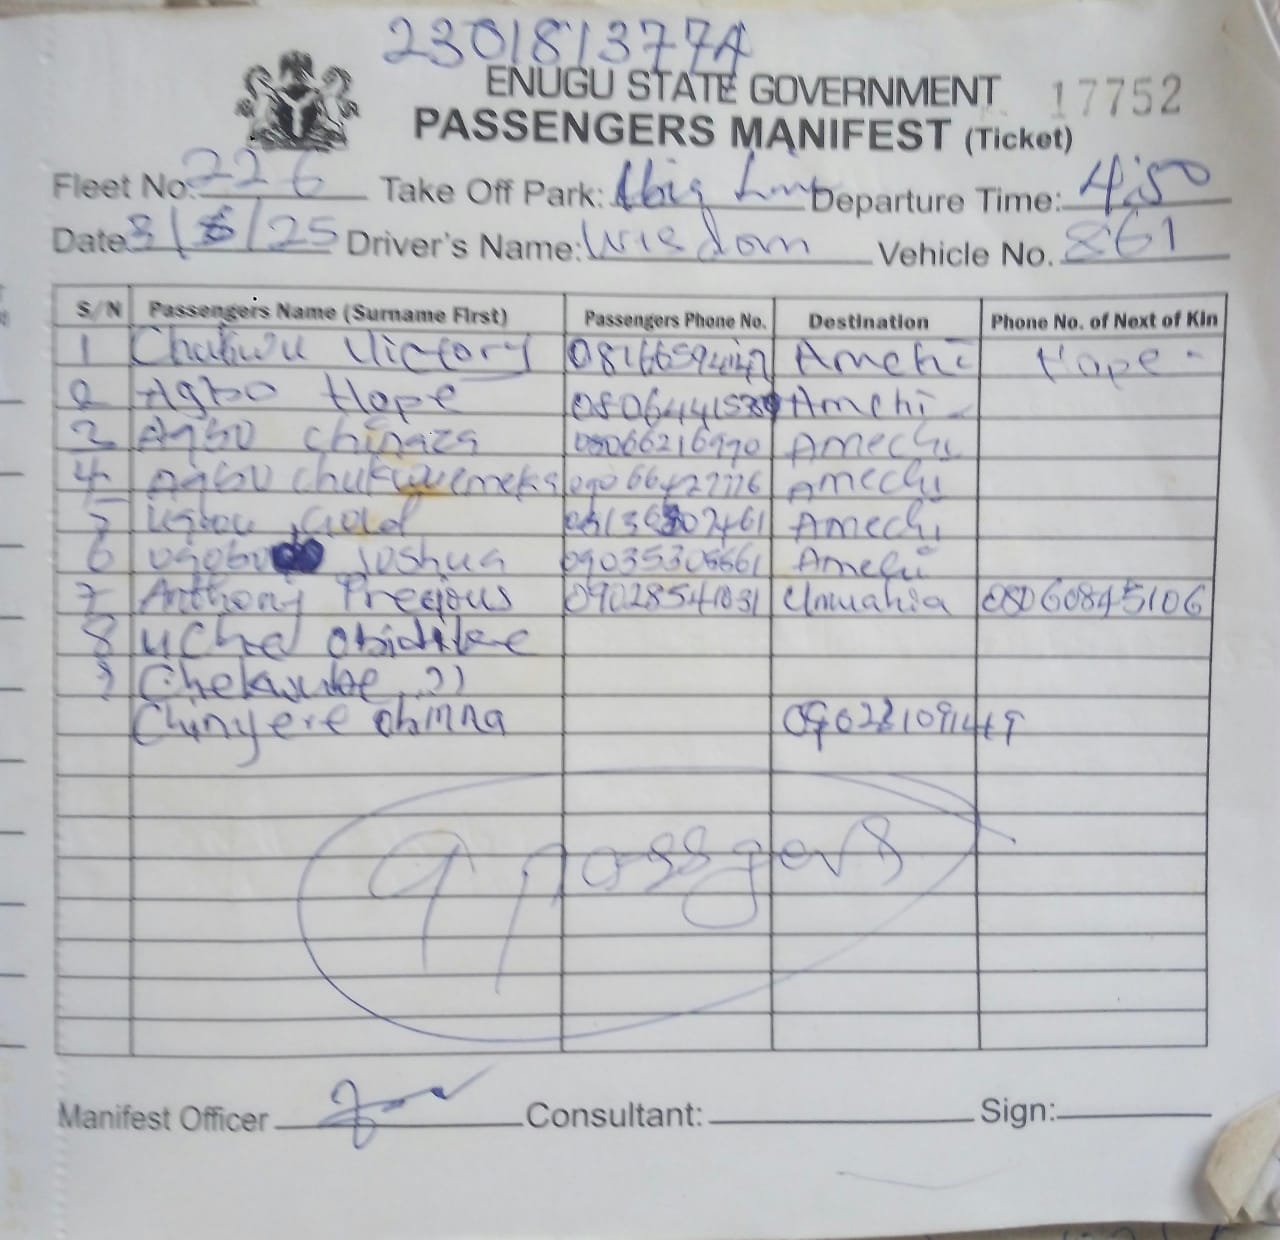 230181377A
ENUGU STATE GOVERNMENT 17752
PASSENGERS MANIFEST (Ticket)
Fleet No: 226 Take Off Park: Departure Time: 4:50
Date 3/8/25 Driver's Name: Wisdom Vehicle No. 861
S/N Passengers Name (Surname First) Passengers Phone No. Destination Phone No. of Next of Kin
1 Chukwu Victory Amechi Hope -
2 Agbo Hope Amchi
3 Agbo Chinaza 08066216970 Amechi
4 Agbo Chukwuemeka Amechi
5 Gold Amechi
6 Joshua 09035305661 Amechi
7 Anthony Precious 09028541031 Umuahia 08060845106
8 Uche Obidike
9 Chekwube ,,
Chinyere Obinna
9 passgers
Manifest Officer Consultant: Sign: